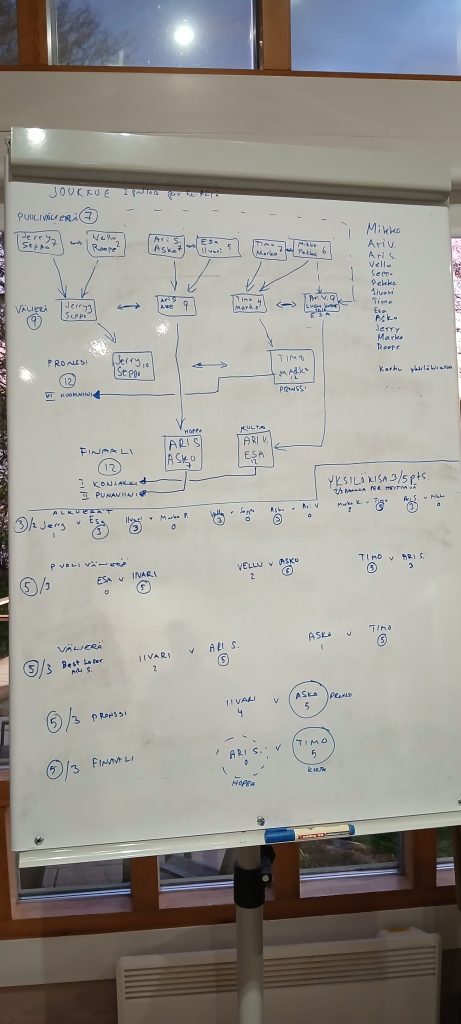 JOUKKUE 2
PUOLIVÄLIERÄ 7
Jerry 7 Vellu 2 Ari S. Esa Timo 7 Mikko
Seppo Roope Asko 7 Iivari 5 Marko Pekka 6
Mikko
Ari V.
Ari S
Vellu
Seppo
Pekka
Iivari
Timo
Esa
Asko
Jerry
Marko
Roope
VÄLIERÄ
9
Jerry Ari S 9 Timo Ari V. 9
Seppo Marko ESA
PRONSSI
12
Jerry 10 TIMO
Seppo MARKO 12
PRONSSI
III
FINAALI
12
HOPEA KULTA
ARI S ARI V.
ASKO 7 ESA 12
I KONJAKKI
II PUNAVIINI
YKSILÖKISA 3/5 pts.
ALKUERÄT
3/2 Jerry v Esa Iivari v Marko Vellu v Seppo Asko v Ari V. Marko v Timo Ari S v
1 3 3 0 3 0 3 0 0 5 3 0
PUOLIVÄLIERÄ
5/3 ESA v IIVARI VELLU v ASKO TIMO v ARI S.
0 5 2 5 5 3
VÄLIERÄ
5/3 Best Loser IIVARI v ARI S. ASKO v TIMO
ARI S. 2 5 1 5
5/3 PRONSSI IIVARI v ASKO PRONSSI
4 5
5/3 FINAALI ARI S. v TIMO
0 5
HOPEA KULTA